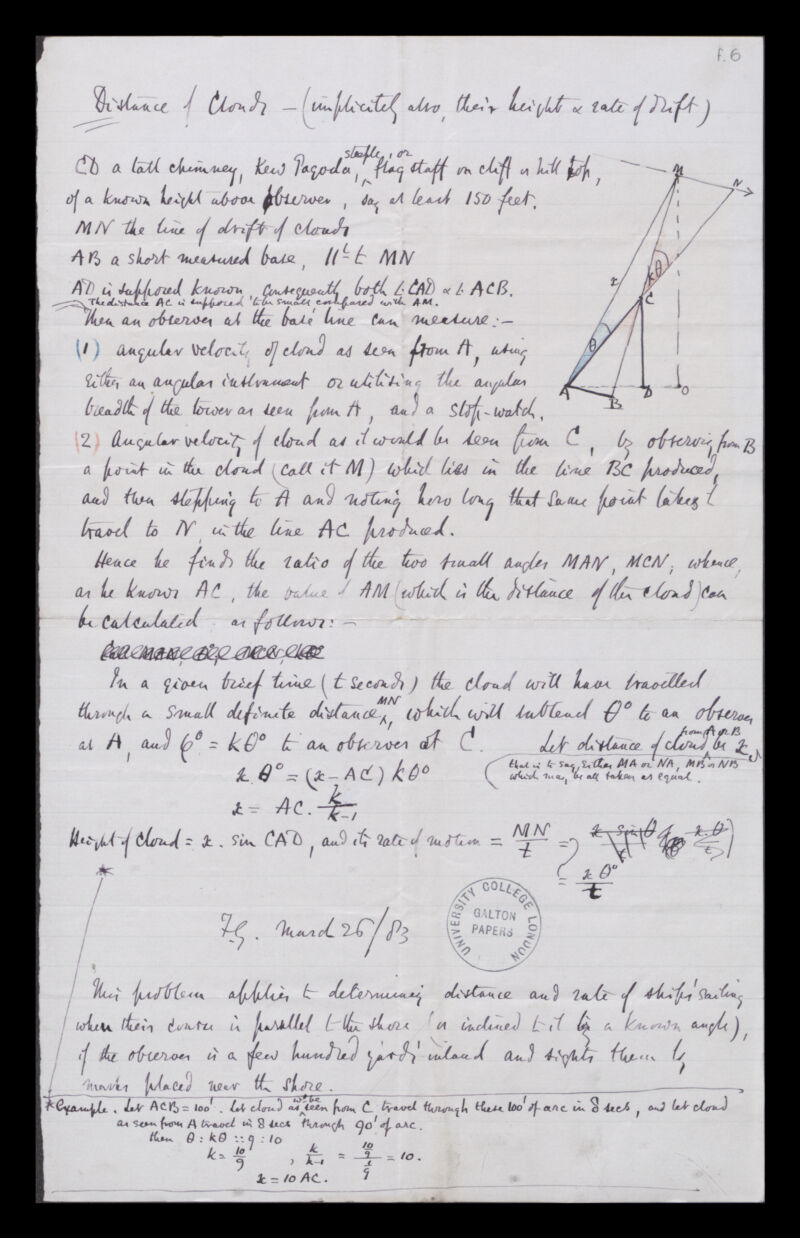 f. 6
Distance of Clouds — (implicitely also, their height & rate of drift)
CD a tall chimney, Kew Pagoda, steeple, or flag staff on cliff or hill top,
of a known height above observer, say at least 150 feet.
MN the line of drift of clouds
AB a short measured base, 11l t MN
AD is supposed known, consequently both L CAD & L ACB.
The distance AC is supposed to be small compared with AM.
Then an observer at the base line can measure:—
(1) angular velocity of cloud as seen from A, using
either an angular instrument or utilising the angular
breadth of the tower as seen from A, and a stop-watch.
(2) Angular velocity of cloud as it would be seen from C, by observing from B
a point in the cloud (call it M) which lies in the line BC produced,
and then stepping to A and noting how long that same point takes to
travel to N in the line AC produced.
Hence he finds the ratio of the two small angles MAN, MCN; whence,
as he knows AC, the value of AM (which is the distance of the cloud) can
be calculated as follows:—
In a given brief time (t seconds) the cloud will have travelled
through a small definite distance MN, which will subtend θ° to an observer
at A, and 6° = kθ° to an observer at C. Let distance of cloud from A or B be x,
that is to say, either MA or NA, MB or NB
which may be all taken as equal.
x θ° = (x − AC) kθ°
x = AC. k/k−1
Height of Cloud = x. sin CAD, and its rate of motion = MN/t =
= x θ°/t
*
FG. March 26/83
UNIVERSITY COLLEGE LONDON
GALTON
PAPERS
This problem applies to determining distance and rate of ships' sailing
when their course is parallel to the shore (or inclined to it by a known angle),
if the observer is a few hundred yards inland and sights them by
marks placed near the shore.
* Example. Let ACB = 100'. Let cloud as wd be seen from C travel through these 100' of arc in 8 secs, and let cloud
as seen from A travel in 8 secs through 90' of arc.
then θ : kθ :: 9 : 10
k = 10/9, k/k−1 = 10/9 / 1/9 = 10.
x = 10 AC.
M
N
x
kθ
C
θ
A
B
D
O